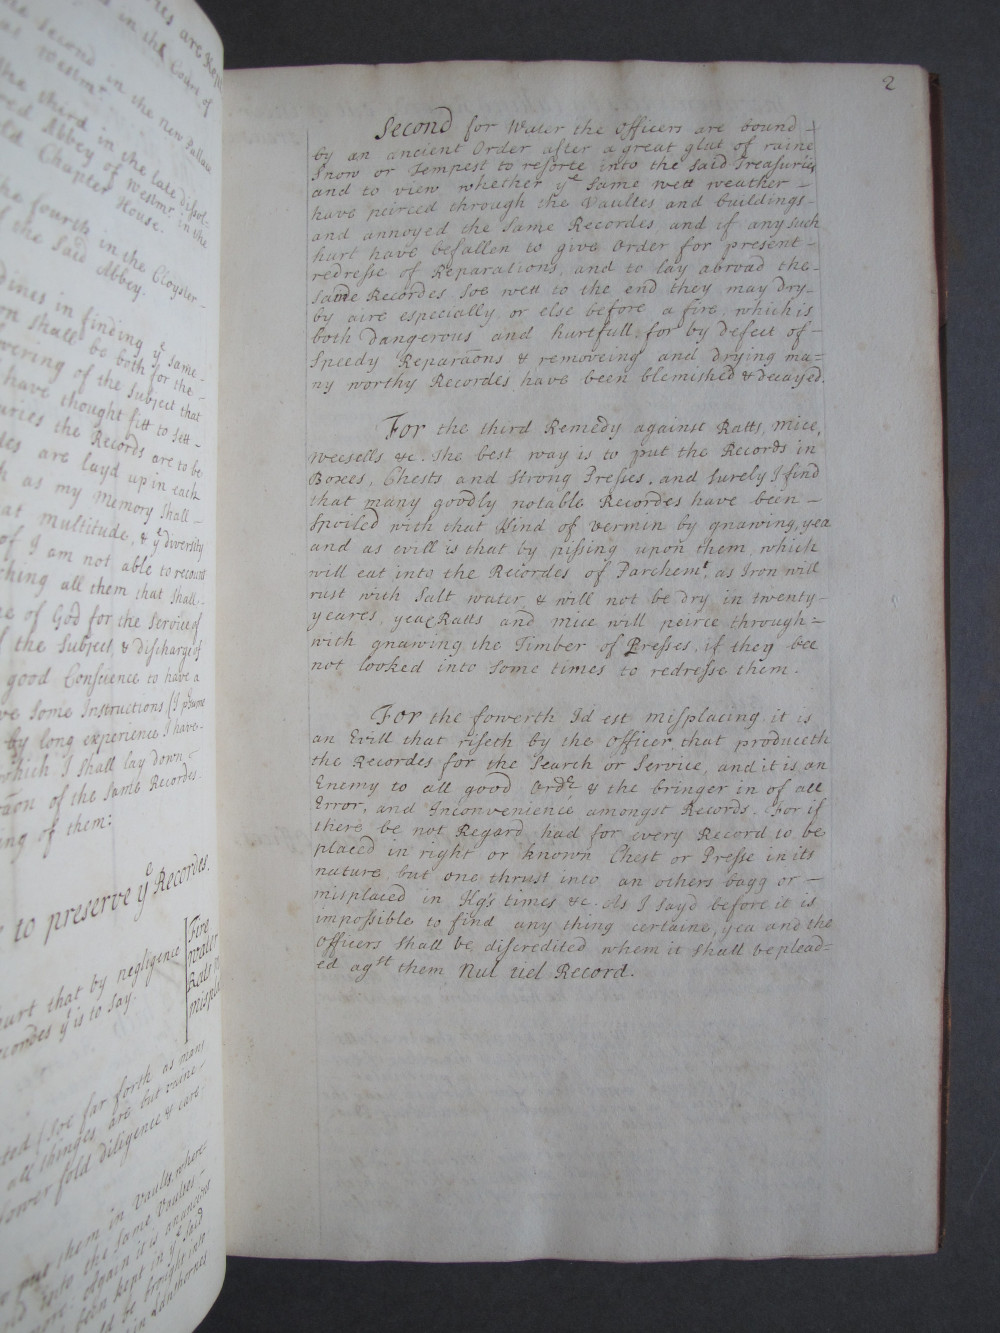 ries are kept
in the Court of
the second in the new Pallace
at Westmr
the third in the late dissol-
ved Abbey of Westmr in the
old Chapter House.
the fourth in the Cloyster
of the said Abbey.
dines in finding ye same -
on shall be both for the -
vering of the Subject that
have thought fitt to sett -
uries the Records are to be
des are layd up in each
h as my memory shall -
at multitude, & ye diversity
of I am not able to recount
ching all them that shall -
e of God for the Service of
f the Subject, & discharge of
good Conscience to have a
ve some Instructions (I p̱sume
by long experience I have -
which I shall lay down -
ãon of the same Recordes
ing of them:
to preserve ye Recordes.
hurt that by negligence
cordes yt is to say.
Fire
water
Ratts
mispla
ted (soe far forth as mans
all thinges are but vaine -
ower fold diligence & care
put them in Vaults where-
into the same Vaultes -
more. Again it is an ancient
been kept in ye said
ld be brought into
in Lanthornes
2
Second for Water the Officers are bound -
by an ancient Order after a great glut of raine
Snow or Tempest to resorte into the said Treasuries
and to view whether ye same wett weather -
have peirced through the Vaultes and buildings -
and annoyed the same Recordes and if any such
hurt have befallen to give Order for present -
redresse of Reparations, and to lay abroad the -
same Recordes soe wett to the end they may dry -
by aire especially or else before a fire, which is
both dangerous and hurtfull, for by defect of -
speedy Reparaõns & removeing and drying ma=
ny worthy Recordes have been blemished & decayed.
For the third Remedy against Ratts, mice,
weesells &c. The best way is to put the Records in
Boxes, Chests and strong Presses, and surely I find
that many goodly notable Recordes have been -
spoiled with that Kind of vermin by gnawing, yea
and as evill is that by pissing upon them, which
will eat into the Recordes of Parchemt, as Iron will
rust with Salt water & will not be dry in twenty -
yeares, yea Ratts and mice will peirce through =
with gnawing the Timber of Presses, if they bee
not looked into some times to redresse them.
For the fowerth Id est misplacing it is
an Evill that riseth by the Officer that produceth
the Recordes for the Search or Service, and it is an
Enemy to all good Ordr & the bringer in of all
Error, and Inconvenience amongst Records. For if
there be not Regard had for every Record to be
placed in right or known Chest or Presse in its
nature, but one thrust into an others bagg or -
misplaced in Kgs times &c. As I sayd before it is
impossible to find any thing certaine, yea and the
Officers shall be discredited whem it shall be plead=
ed agst them Nul uel Record.